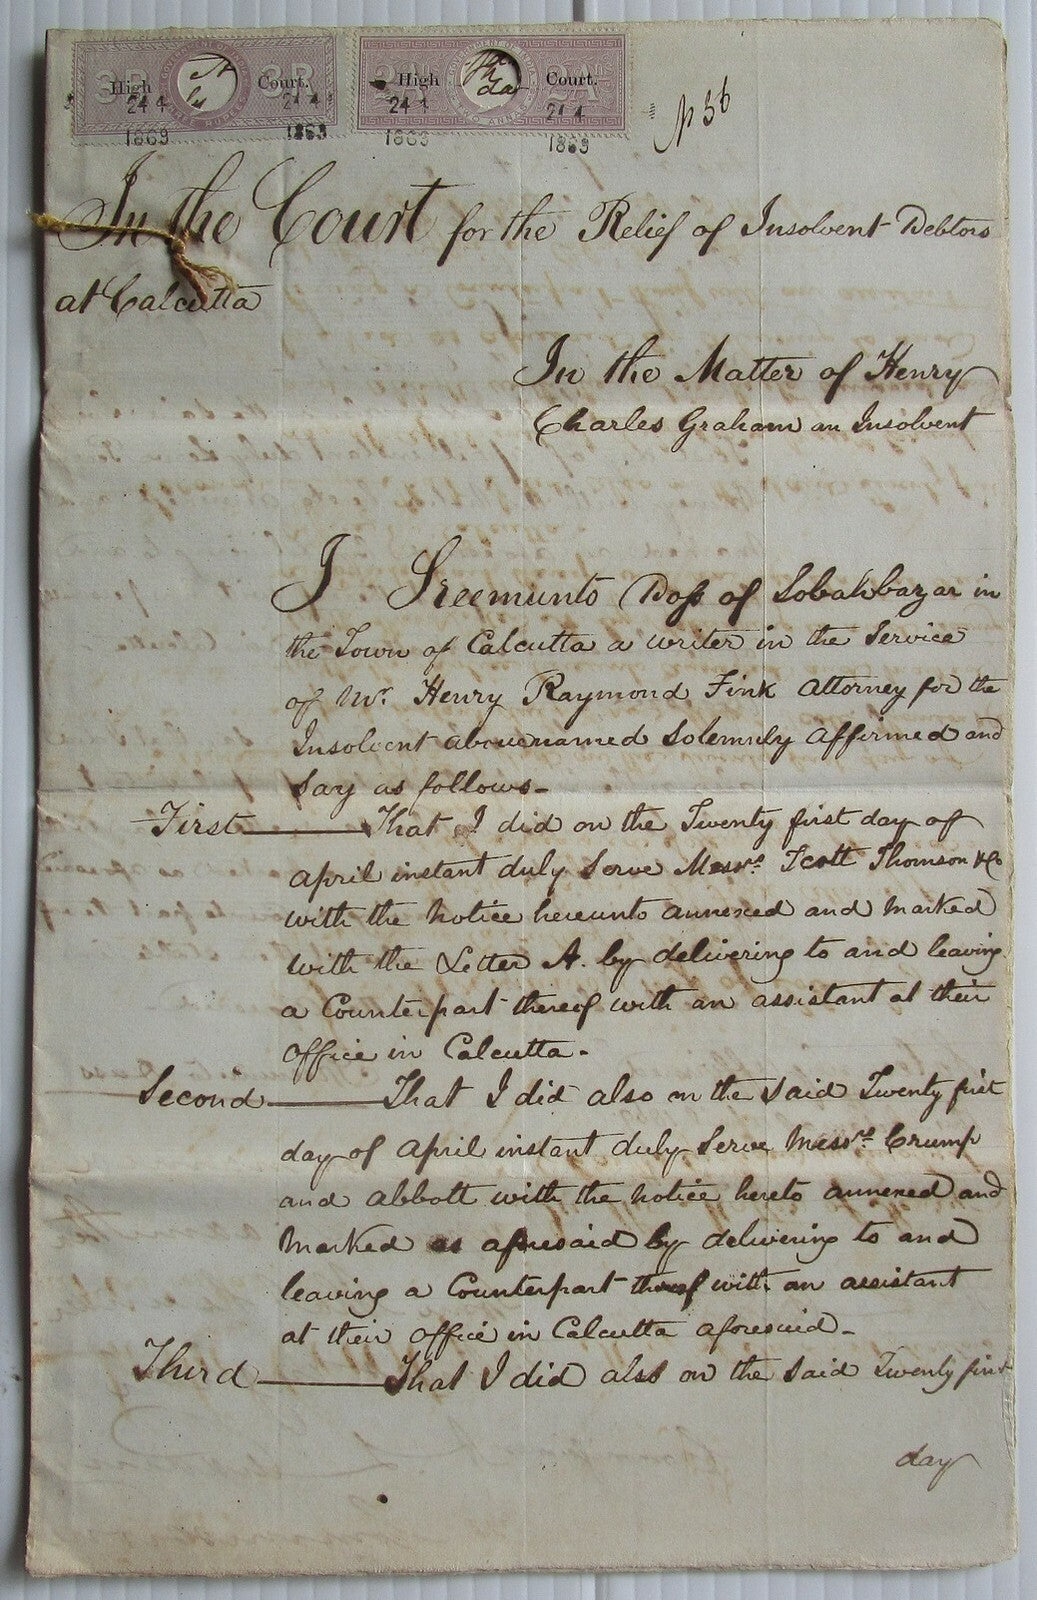 High Court.
24 4 24 4
1869 1869
High Court.
24 4 24 4
1869 1869
In the Court for the Relief of Insolvent Debtors
at Calcutta
In the Matter of Henry
Charles Graham an Insolvent
I Sreemunto Doss of Sobahbazar in
the Town of Calcutta a writer in the Service
of Mr. Henry Raymond Fink Attorney for the
Insolvent abovenamed Solemnly Affirmed and
Say as follows-
First That I did on the Twenty first day of
April instant duly Serve Messrs. Scott Thomson & Co
with the Notice hereunto annexed and Marked
with the Letter A. by delivering to and leaving
a Counterpart thereof with an assistant at their
Office in Calcutta-
Second That I did also on the Said Twenty first
day of April instant duly Serve Messrs. Crump
and Abbott with the Notice hereto annexed and
Marked as aforesaid by delivering to and
leaving a Counterpart thereof with an assistant
at their Office in Calcutta aforesaid-
Third That I did also on the Said Twenty first
day